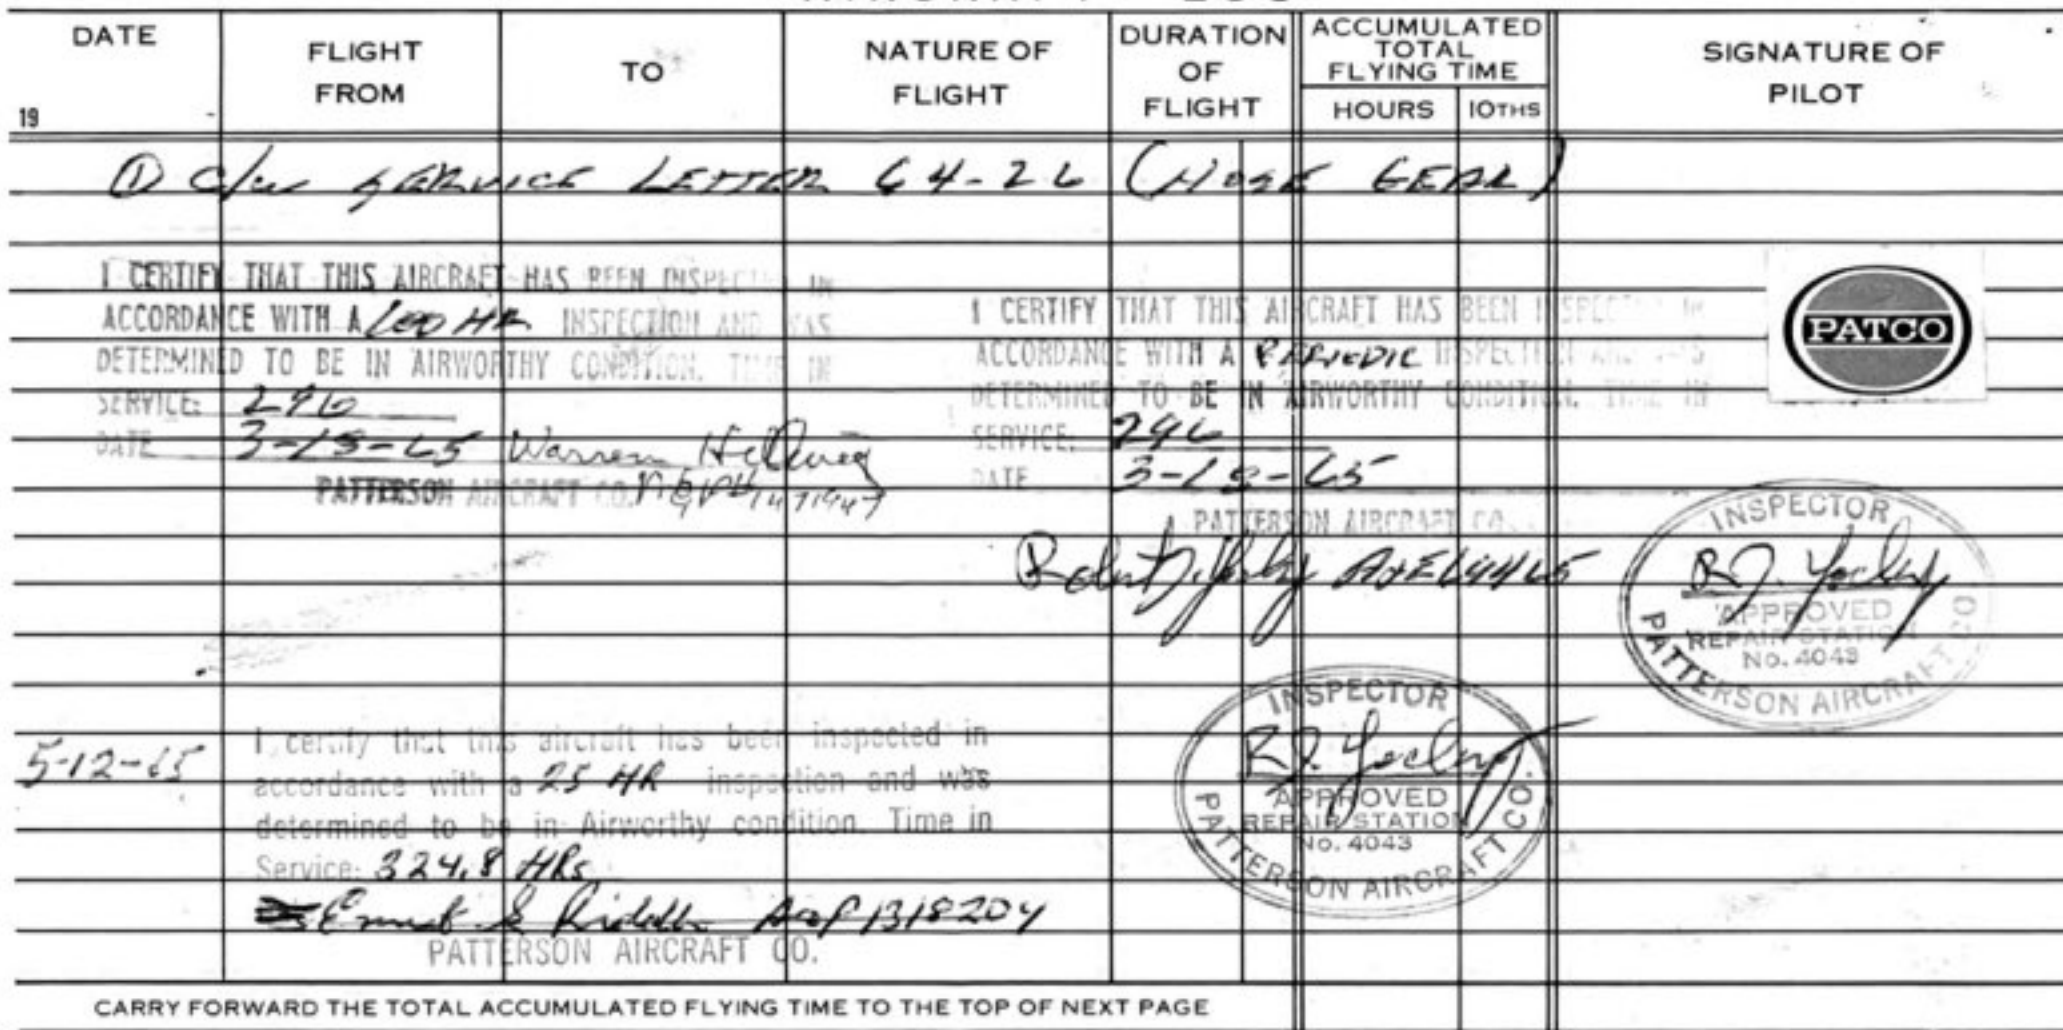 DATE
19
FLIGHT
FROM
TO
NATURE OF
FLIGHT
DURATION
OF
FLIGHT
ACCUMULATED
TOTAL
FLYING TIME
HOURS
10THS
SIGNATURE OF
PILOT
① C/W SERVICE LETTER 64-26 (NOSE GEAR)
I CERTIFY THAT THIS AIRCRAFT HAS BEEN INSPECTED IN
ACCORDANCE WITH A 100 HR INSPECTION AND WAS
DETERMINED TO BE IN AIRWORTHY CONDITION. TIME IN
SERVICE: 296
DATE 3-15-65 Warren
PATTERSON AIRCRAFT CO.
I CERTIFY THAT THIS AIRCRAFT HAS BEEN INSPECTED IN
ACCORDANCE WITH A PERIODIC INSPECTION AND WAS
DETERMINED TO BE IN AIRWORTHY CONDITION. TIME IN
SERVICE: 296
DATE 3-15-65
PATTERSON AIRCRAFT CO.
Robert J.
PATCO
INSPECTOR
R.J.
APPROVED
REPAIR STATION
No. 4043
PATTERSON AIRCRAFT CO.
5-12-65
I certify that this aircraft has been inspected in
accordance with a 25 HR inspection and was
determined to be in Airworthy condition. Time in
Service: 324.8 HRs
Ernest 1318204
PATTERSON AIRCRAFT CO.
INSPECTOR
R.J.
APPROVED
REPAIR STATION
No. 4043
PATTERSON AIRCRAFT CO.
CARRY FORWARD THE TOTAL ACCUMULATED FLYING TIME TO THE TOP OF NEXT PAGE